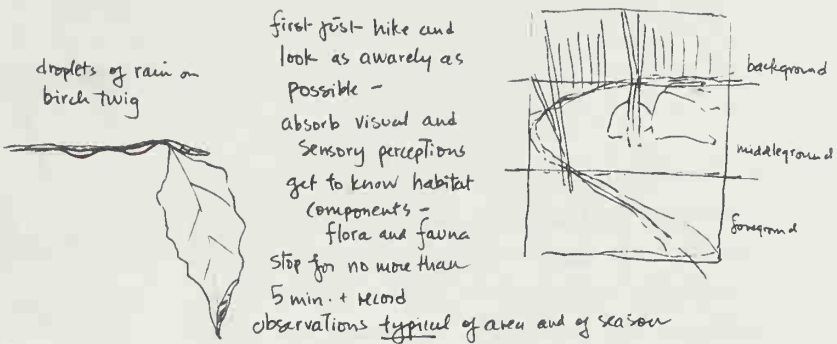 droplets of rain on
birch twig
first just hike and
look as awarely as
possible -
absorb visual and
sensory perceptions
get to know habitat
components -
flora and fauna
stop for no more than
5 min. + record
observations typical of area and of season
background
middleground
foreground